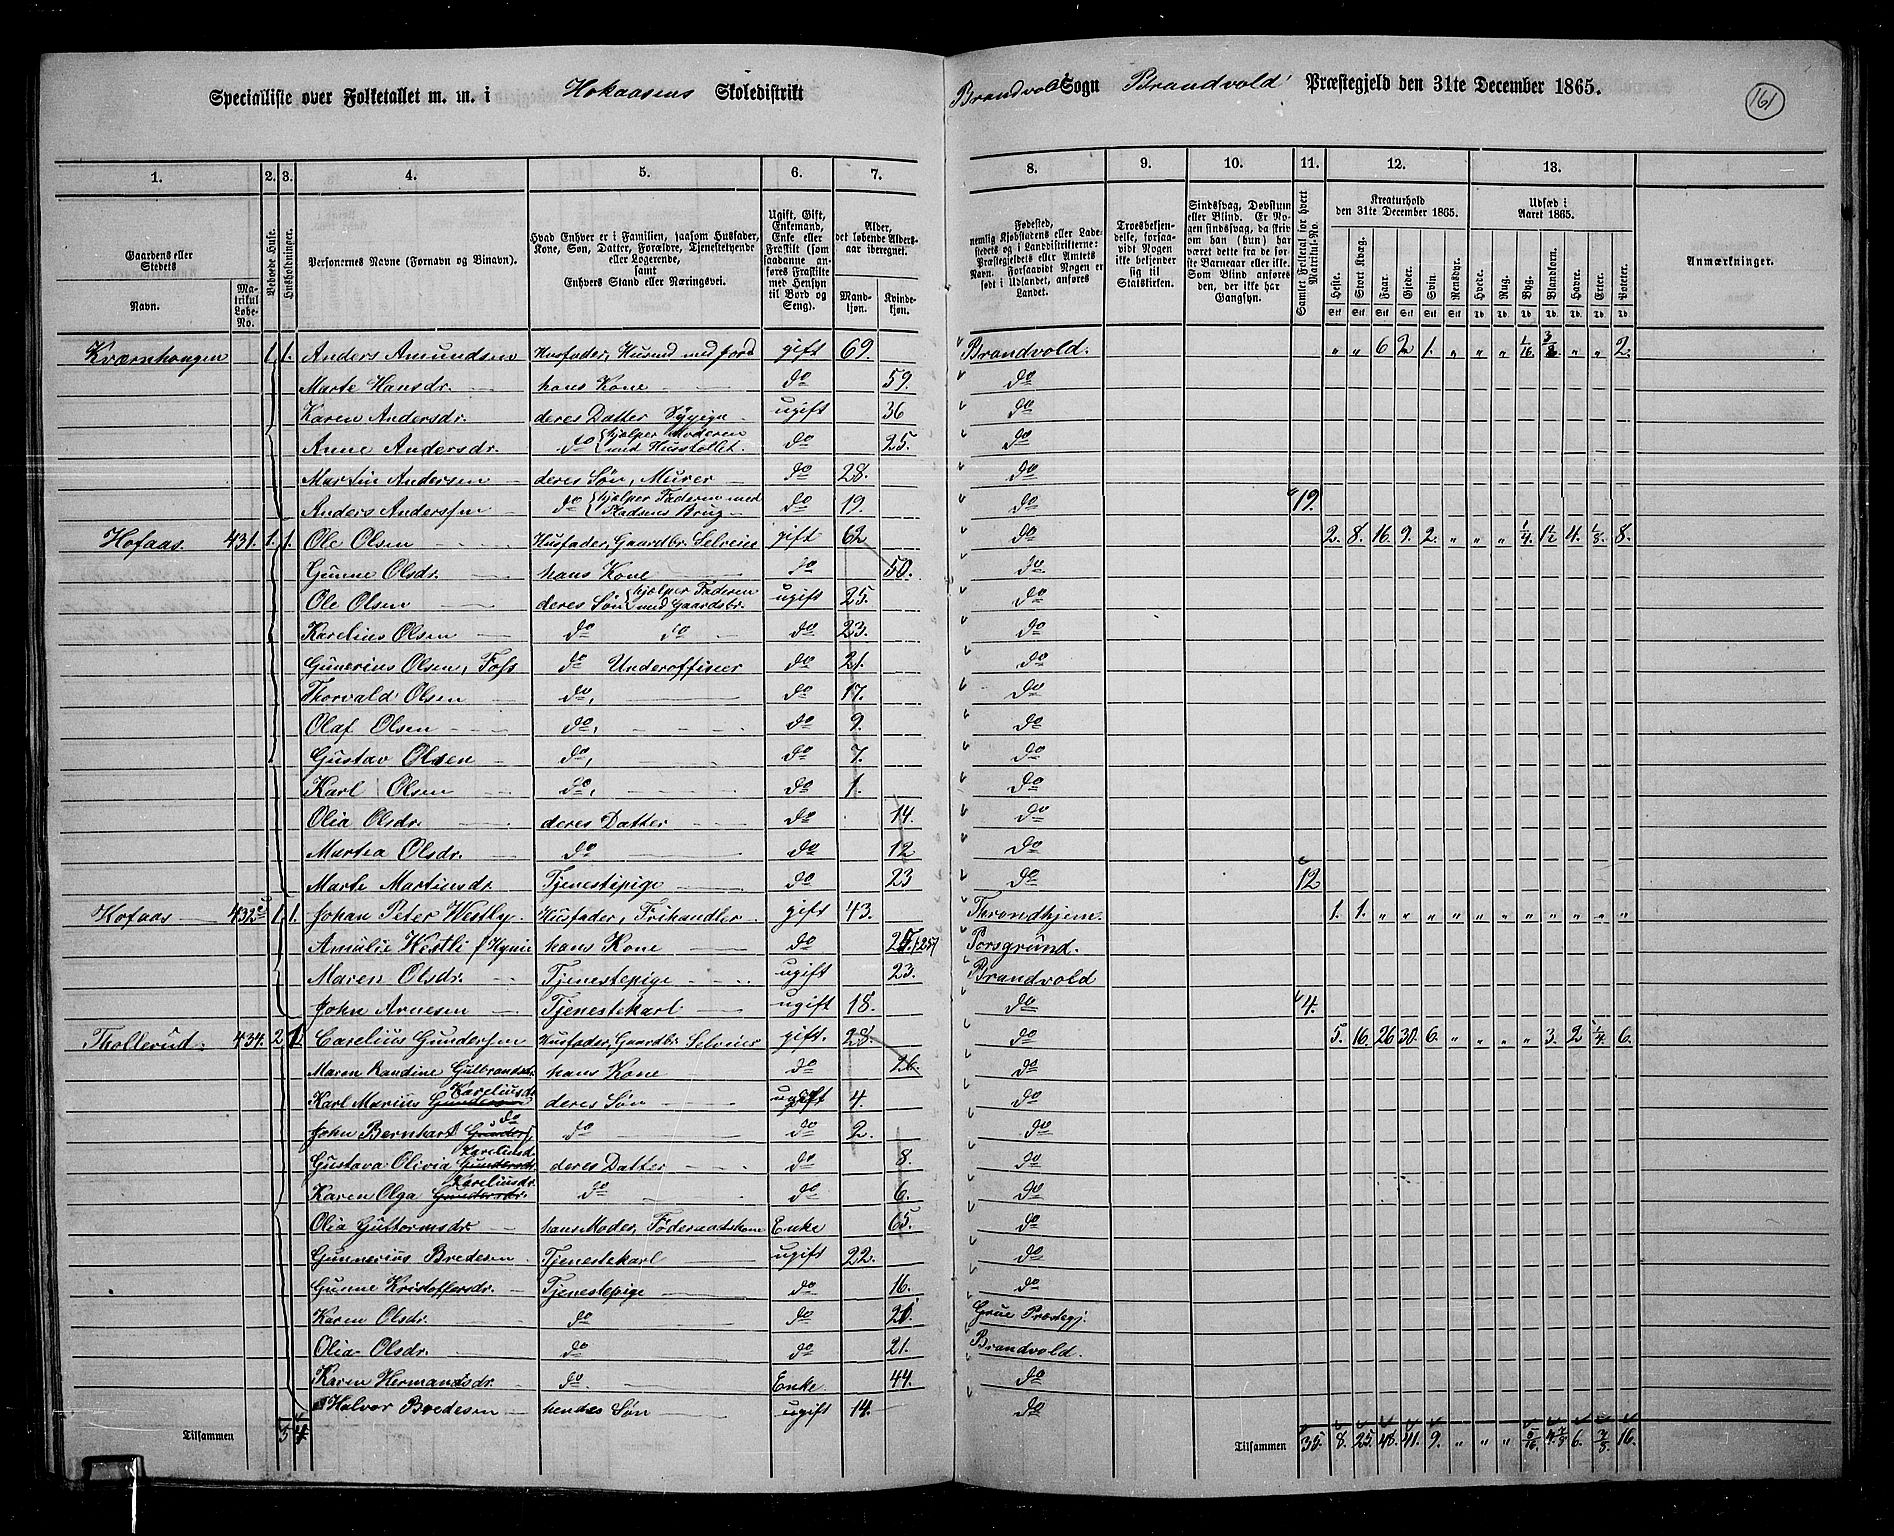 Specialliste over Folketallet m. m. i Hokaasens Skoledistrikt Brandvold Sogn Brandvold Præstegjeld den 31te December 1865.
161
1. 2. 3. 4. 5. 6. 7. 8. 9. 10. 11. 12. 13.
Gaardens eller Stedets
Navn.
Matrikul Løbe-No.
Beboede Huse.
Husholdninger.
Personernes Navne (Fornavn og Binavn).
Hvad Enhver er i Familien, saasom Husfader, Kone, Søn, Datter, Forældre, Tjenestetyende eller Logerende, samt Enhvers Stand eller Næringsvei.
Ugift, Gift, Enkemand, Enke eller Fraskilt (som saadanne anføres Fraskilte med Hensyn til Bord og Seng).
Alder, det løbende Aldersaar iberegnet.
Mandkjøn. Kvindekjøn.
Fødested, nemlig Kjøbstadens eller Ladestedets og i Landdistrikterne: Præstegjeldets eller Amtets Navn. Forsaavidt Nogen er født i Udlandet, anføres Landet.
Troesbekjendelse, forsaavidt Nogen ikke bekjender sig til Statskirken.
Sindssvag, Døvstum eller Blind. Er Nogen sindssvag, da skriv om han (hun) har været dette fra de første Barneaar eller ikke. Som Blind anføres den, der ikke har Gangsyn.
Samlet Folketal for hvert Matrikul-No.
Kreaturhold den 31te December 1865.
Heste. Stort Kvæg. Faar. Gjeder. Svin. Rensdyr.
Udsæd i Aaret 1865.
Hvede. Rug. Byg. Blandkorn. Havre. Erter. Poteter.
Anmærkninger.
Stk Stk Stk Stk Stk Stk Td. Td. Td. Td. Td. Td. Td.
Kværnhougen 1. 1. Anders Amundsen Husfader, Husmd med Jord gift 69. Brandvold. " " 6 2 1. " " " 1/16 3/8 " " 2.
Marte Hansdr. hans Kone do 59. do
Karen Andersdr. deres Datter Sypige ugift 36 do
Anne Andersdr. do hjælper Moderen med Husstellet. do 25. do
Martin Andersen deres Søn, Murer do 28. do
Anders Andersen do hjælper Faderen med Pladsens Brug do 19. do 19.
Hofaas. 431. 1. 1. Ole Olsen Husfader, Gaardbr. Selveier gift 62 do 2. 8. 16. 9. 2. " " " 1/4 1 1/2 4. 1/8 8.
Gunne Olsdr. hans Kone do 50. do
Ole Olsen deres Søn hjælper Faderen med Gaardsbr. ugift 25. do
Karelius Olsen do do do 23. do
Gunerius Olsen, Foss do Underofficier do 21. do
Thorvald Olsen do, do 17. do
Olaf Olsen do, do 9. do
Gustav Olsen do, do 7. do
Karl Olsen do, do 1. do
Olia Olsdr. deres Datter do 14. do
Martea Olsdr. do do 12 do
Marte Martinsdr. Tjenestepige do 23 do 12
Kofaas 432 1. 1. Johan Peter Westly. Husfader, Frihandler gift 43. Throndhjem. 1. 1. " " " " " " " " " " "
Amalie Westli f Hynie hans Kone do 25 (25) Porsgrund.
Maren Olsdr. Tjenestepige ugift 23. Brandvold
John Arnesen Tjenestekarl ugift 18. do 4.
Thollerud. 434. 2. 1. Carelius Gundersen Husfader, Gaardbr. Selveier gift. 28. do 5. 16. 26 30. 6. " " " " 3. 2 1/4 6.
Maren Randine Gulbrandsdr. hans Kone do 26. do
Karl Marius Gundersen Kareliusn. deres Søn ugift 4. do
John Bernhart Gunders. do do do 2. do
Gustava Olivia Gundersdr. Kareliusd. deres Datter do 8. do
Karen Olga Gundersdr. Kareliusdr. do do 6. do
Olia Guttormsdr. hans Moder, Föderaadskone Enke 65. do
Gunnerius Bredesen Tjenestekarl ugift 22. do
Gunne Kristoffersdr. Tjenestepige do 16. do
Karen Olsdr. do do 21 Grue Præstegj.
Olia Olsdr. do do 21. Brandvold.
Karen Hermandsdr. do. Enke. 44. do
Halvor Bredesen hendes Søn ugift 14. do
Tilsammen 5 4 Tilsammen 35. 8. 25. 48. 41. 9. " " " 5/16 4 7/8 6. 3/8 16.